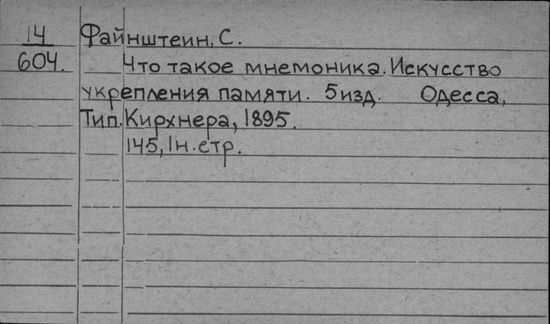 14 Файнштеин, С.
604. Что такое мнемоника. Искусство
укрепления памяти. 5 изд. Одесса,
Тип. Кирхнера, 1895.
145, 1 н. стр.